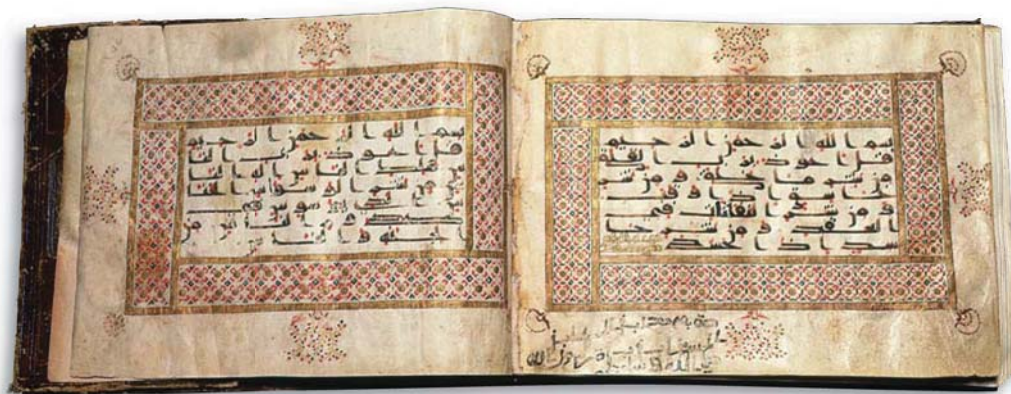 بسم الله الرحمن الرحيم
قل اعوذ برب الفلق
من شر ما خلق و من شر
غاسق اذا وقب
و من شر النفثت في
العقد و من شر حا
سد اذا حسد
بسم الله الرحمن الرحيم
قل اعوذ برب النا
س ملك الناس اله النا
س من شر الوسواس الخنا
س الذي يوسوس في
صدور الناس من
الجنة و الناس